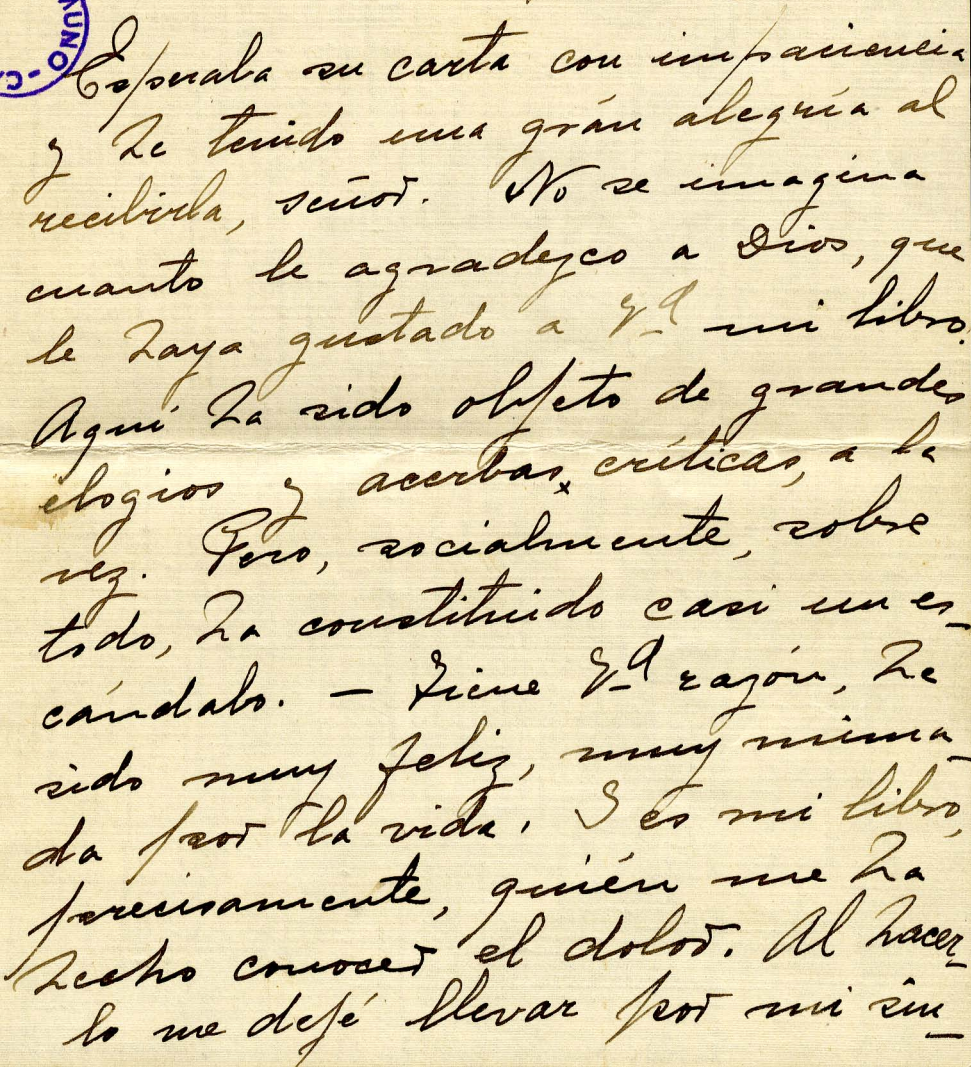 UNO - C.
Esperaba su carta con impaciencia
y he tenido una grán alegría al
recibirla, señor. No se imagina
cuanto le agradezco a Dios, que
le haya gustado a Vd mi libro.
Aqui ha sido objeto de grandes
elogios y acerbas críticas, a la
vez. Pero, socialmente, sobre
todo, ha constituido casi un es-
cándalo. — Tiene Vd razón, he
sido muy feliz, muy mima-
da por la vida. Y es mi libro,
precisamente, quién me ha
hecho conocer el dolor. Al hacer-
lo me dejé llevar por mi sin-